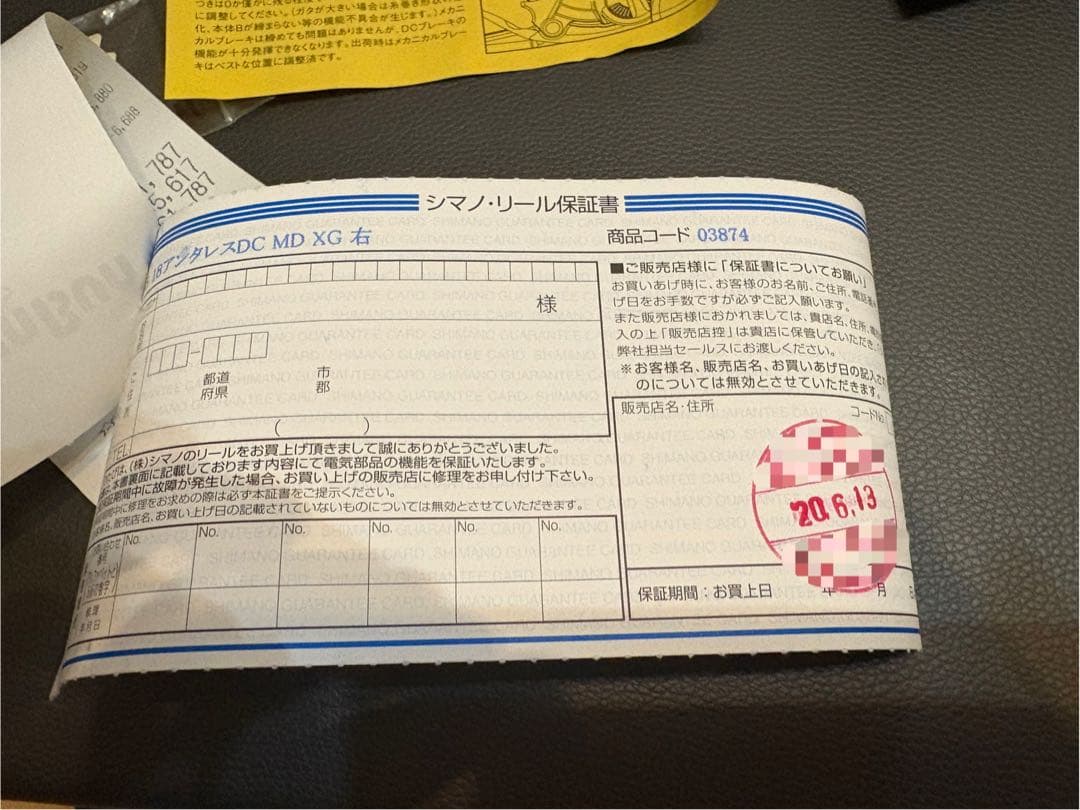 に調整してください。(ガタが大きい場合は糸巻き形状の
化、本体Bが締まらない等の機能不具合が生じます。)メカニ
カルブレーキは締めても問題はありませんが、DCブレーキの
機能が十分発揮できなくなります。出荷時はメカニカルブレー
キはベストな位置に調整済です。
880
-6,688
,787
5,617
,787
シマノ・リール保証書
18アンタレスDC MD XG 右
商品コード 03874
様
都道
府県
市
郡
TEL
( )
■ご販売店様に「保証書についてお願い」
お買いあげ時に、お客様のお名前、ご住所、電話番
げ日をお手数ですが必ずご記入願います。
また販売店様におかれましては、貴店名、住所、
入の上「販売店控」は貴店に保管していただき、
弊社担当セールスにお渡しください。
※お客様名、販売店名、お買いあげ日の記入
のについては無効とさせていただきます。
販売店名・住所
コードNo
20.6.13
保証期間:お買上日 年 月
(株)シマノのリールをお買上げ頂きまして誠にありがとうございました。
は、本書裏面に記載しております内容にて電気部品の機能を保証いたします。
証期間中に故障が発生した場合、お買い上げの販売店に修理をお申し付け下さい。
期間中に修理をお求めの際は必ず本証書をご提示ください。
様名、販売店名、お買い上げ日の記載されていないものについては無効とさせていただきます。
No. No. No. No. No. No.
修理
年月日
SHIMANO GUARANTEE CARD